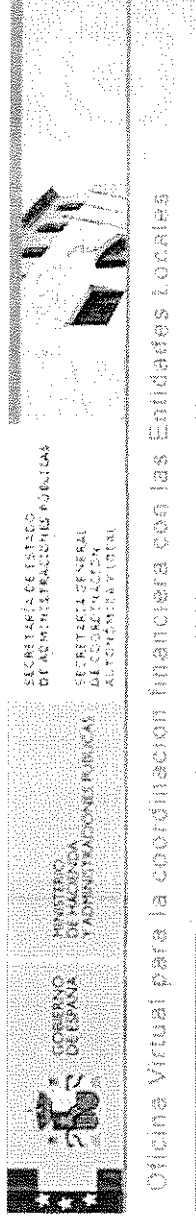 GOBIERNO
DE ESPAÑA
MINISTERIO
DE HACIENDA
Y ADMINISTRACIONES PÚBLICAS
SECRETARÍA DE ESTADO
DE ADMINISTRACIONES PÚBLICAS
SECRETARÍA GENERAL
DE COORDINACIÓN
AUTONÓMICA Y LOCAL
Oficina Virtual para la coordinación financiera con las Entidades Locales